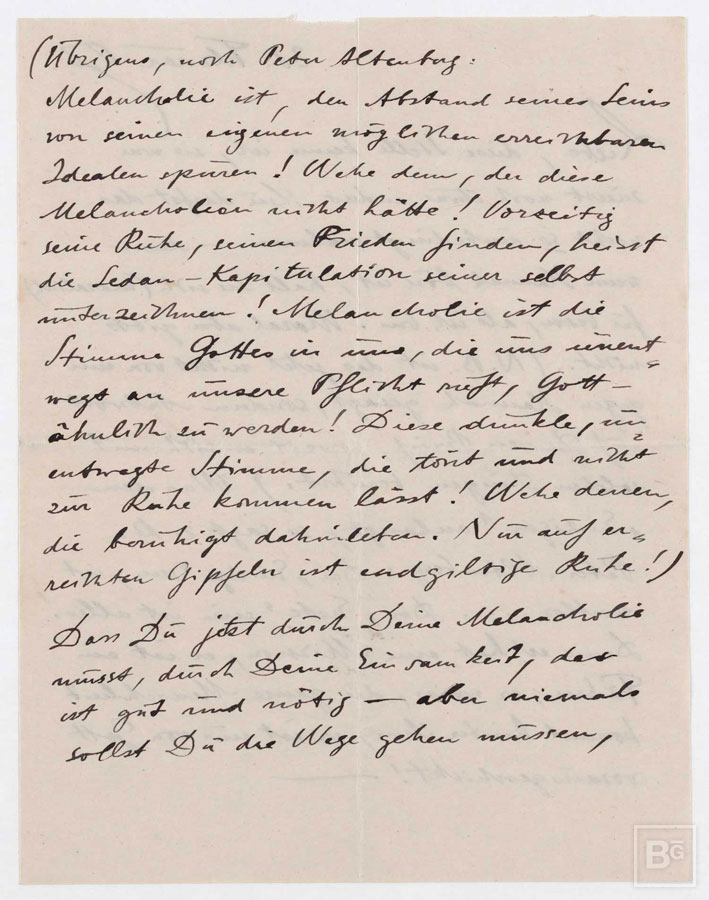 (Übrigens, noch Peter Altenberg:
Melancholie ist, den Abstand seines Seins
von seinen eigenen möglichen erreichbaren
Idealen spüren! Wehe dem, der diese
Melancholien nicht hätte! Vorzeitig
seine Ruhe, seinen Frieden finden, heisst
die Sedan-Kapitulation seiner selbst
unterzeichnen! Melancholie ist die
Stimme Gottes in uns, die uns unent-
wegt an unsere Pflicht ruft, Gott-
ähnlich zu werden! Diese dunkle, un-
entwegte Stimme, die tönt und nicht
zur Ruhe kommen lässt! Wehe denen,
die beruhigt dahinleben. Nur auf er-
reichten Gipfeln ist endgiltige Ruhe!)
Dass Du jetzt durch Deine Melancholie
musst, durch Deine Einsamkeit, das
ist gut und nötig — aber niemals
sollst Du die Wege gehen müssen,
BG